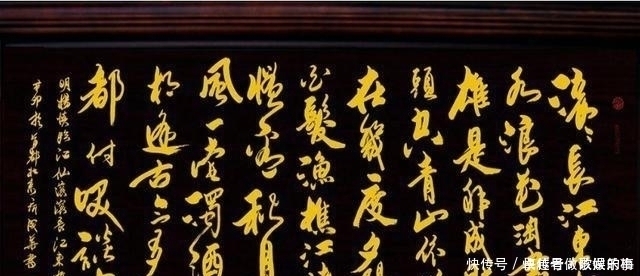 滚〻長江東
水浪花淘
雄是非成
頭空青山依
在幾度夕
白髮漁樵江
惯看秋月
風一壶濁酒
相逢古今多
都付笑談
明楊慎臨江仙滚滚長江東
辛卯於首都北京
快传号/